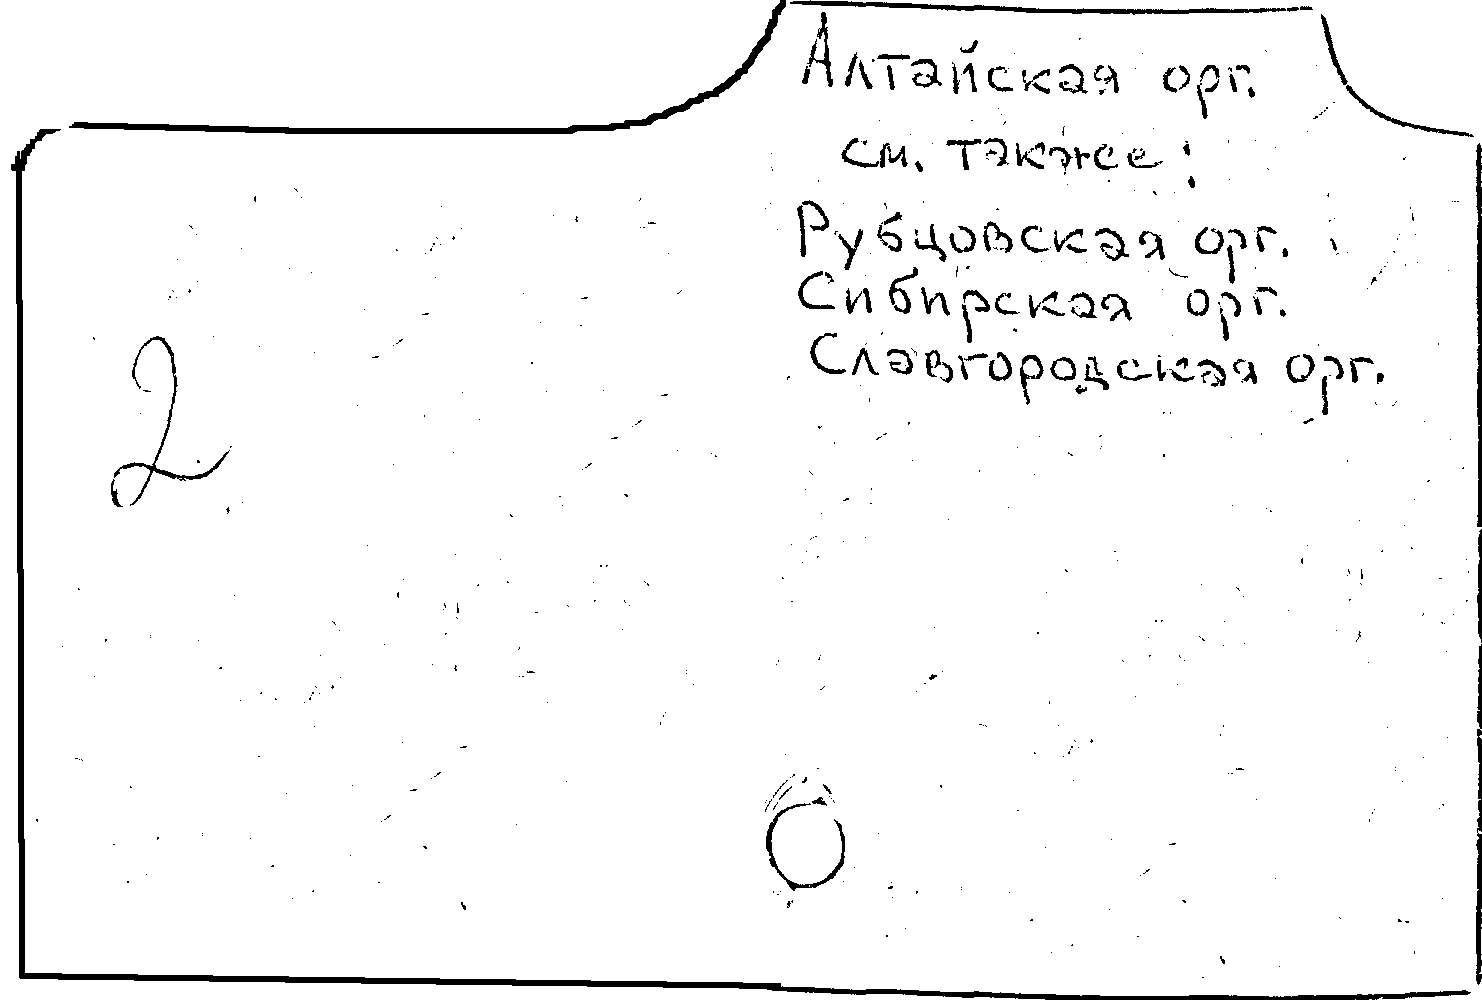 Алтайская орг.
см. также:
Рубцовская орг.
Сибирская орг.
Славгородская орг.
2